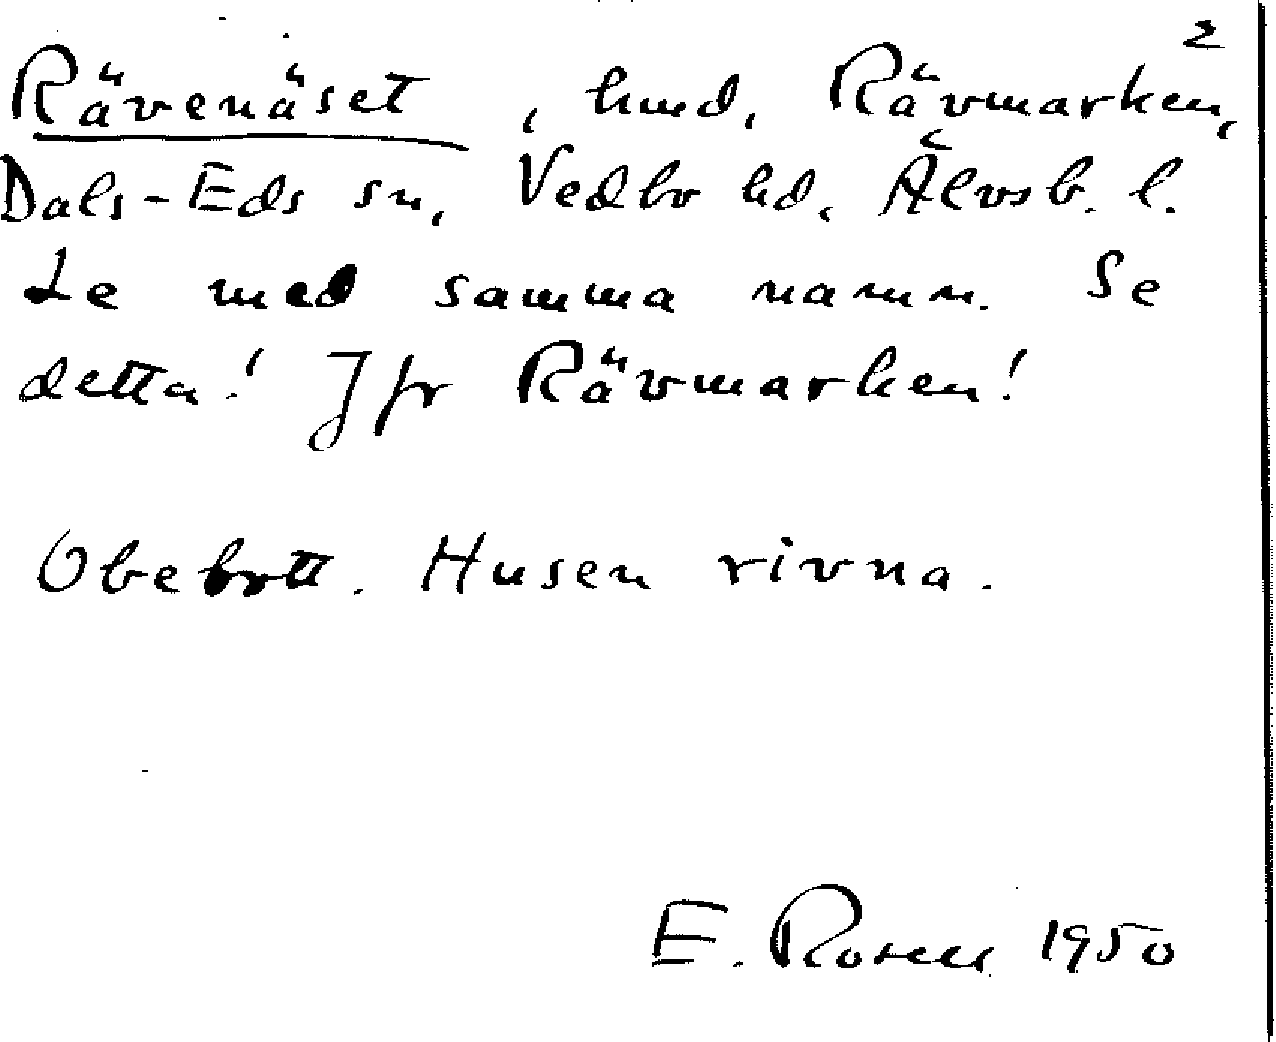 2
Rävenäset, hmd, Rävmarken,
Dals-Eds sn, Vedbo hd, Älvsb. l.
Le med samma namn. Se
detta! Jfr Rävmarken!
Obebott. Husen rivna.
E. Rosell 1950